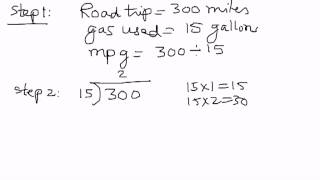 Step1: Road trip = 300 miles
gas used = 15 gallons
mpg = 300 ÷ 15
2
step 2: 15)300 15x1=15
15x2=30